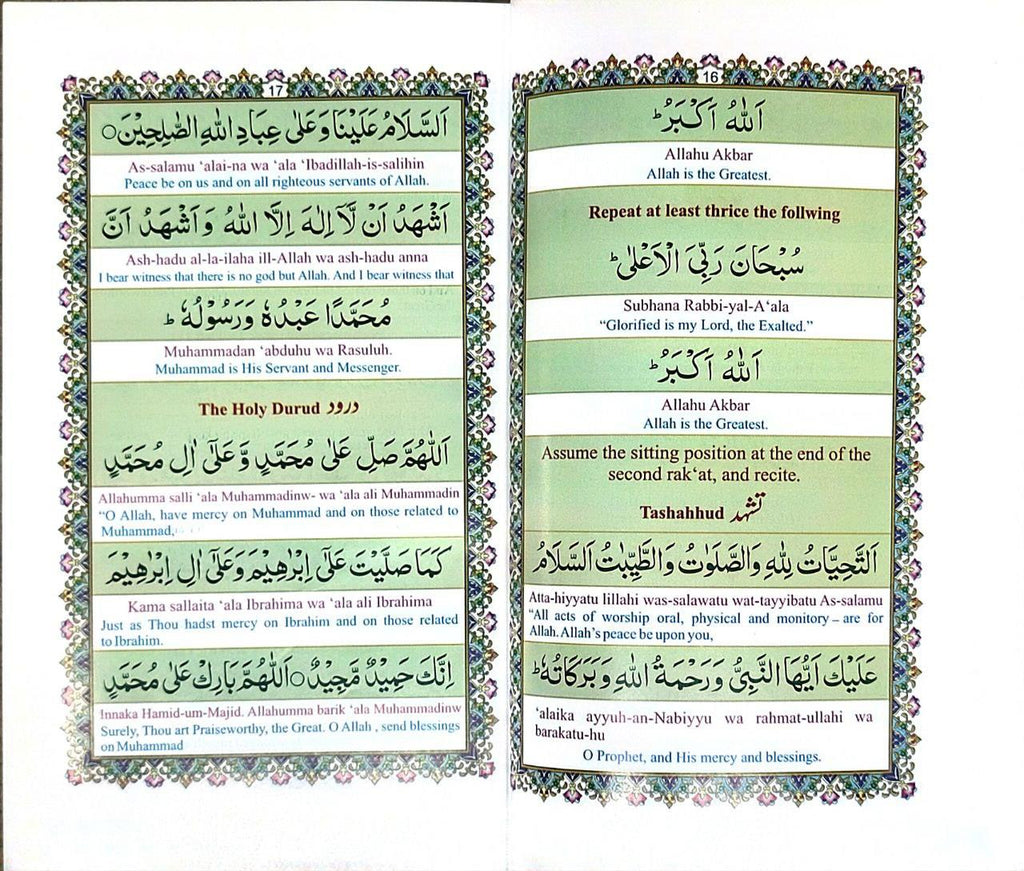 16
اَللّٰهُ اَكْبَرُ ؕ
Allahu Akbar
Allah is the Greatest.
Repeat at least thrice the follwing
سُبْحَانَ رَبِّىَ الْاَعْلٰى ؕ
Subhana Rabbi-yal-A‘ala
“Glorified is my Lord, the Exalted.”
اَللّٰهُ اَكْبَرُ ؕ
Allahu Akbar
Allah is the Greatest.
Assume the sitting position at the end of the
second rak‘at, and recite.
Tashahhud تشہد
اَلتَّحِيَّاتُ لِلّٰهِ وَالصَّلَوٰتُ وَالطَّيِّبٰتُ اَلسَّلَامُ
Atta-hiyyatu lillahi was-salawatu wat-tayyibatu As-salamu
“All acts of worship oral, physical and monitory – are for
Allah. Allah’s peace be upon you,
عَلَيْكَ اَيُّهَا النَّبِىُّ وَرَحْمَةُ اللّٰهِ وَبَرَكَاتُهٗ ؕ
‘alaika ayyuh-an-Nabiyyu wa rahmat-ullahi wa
barakatu-hu
O Prophet, and His mercy and blessings.
17
اَلسَّلَامُ عَلَيْنَا وَعَلٰى عِبَادِ اللّٰهِ الصّٰلِحِيْنَ ○
As-salamu ‘alai-na wa ‘ala ‘Ibadillah-is-salihin
Peace be on us and on all righteous servants of Allah.
اَشْهَدُ اَنْ لَّآ اِلٰهَ اِلَّا اللّٰهُ وَاَشْهَدُ اَنَّ
Ash-hadu al-la-ilaha ill-Allah wa ash-hadu anna
I bear witness that there is no god but Allah. And I bear witness that
مُحَمَّدًا عَبْدُهٗ وَرَسُوْلُهٗ ؕ
Muhammadan ‘abduhu wa Rasuluh.
Muhammad is His Servant and Messenger.
The Holy Durud درود
اَللّٰهُمَّ صَلِّ عَلٰى مُحَمَّدٍ وَّعَلٰٓى اٰلِ مُحَمَّدٍ
Allahumma salli ‘ala Muhammadinw- wa ‘ala ali Muhammadin
“O Allah, have mercy on Muhammad and on those related to
Muhammad,
كَمَا صَلَّيْتَ عَلٰٓى اِبْرٰهِيْمَ وَعَلٰٓى اٰلِ اِبْرٰهِيْمَ
Kama sallaita ‘ala Ibrahima wa ‘ala ali Ibrahima
Just as Thou hadst mercy on Ibrahim and on those related
to Ibrahim.
اِنَّكَ حَمِيْدٌ مَّجِيْدٌ ○ اَللّٰهُمَّ بَارِكْ عَلٰى مُحَمَّدٍ
Innaka Hamid-um-Majid. Allahumma barik ‘ala Muhammadinw
Surely, Thou art Praiseworthy, the Great. O Allah , send blessings
on Muhammad